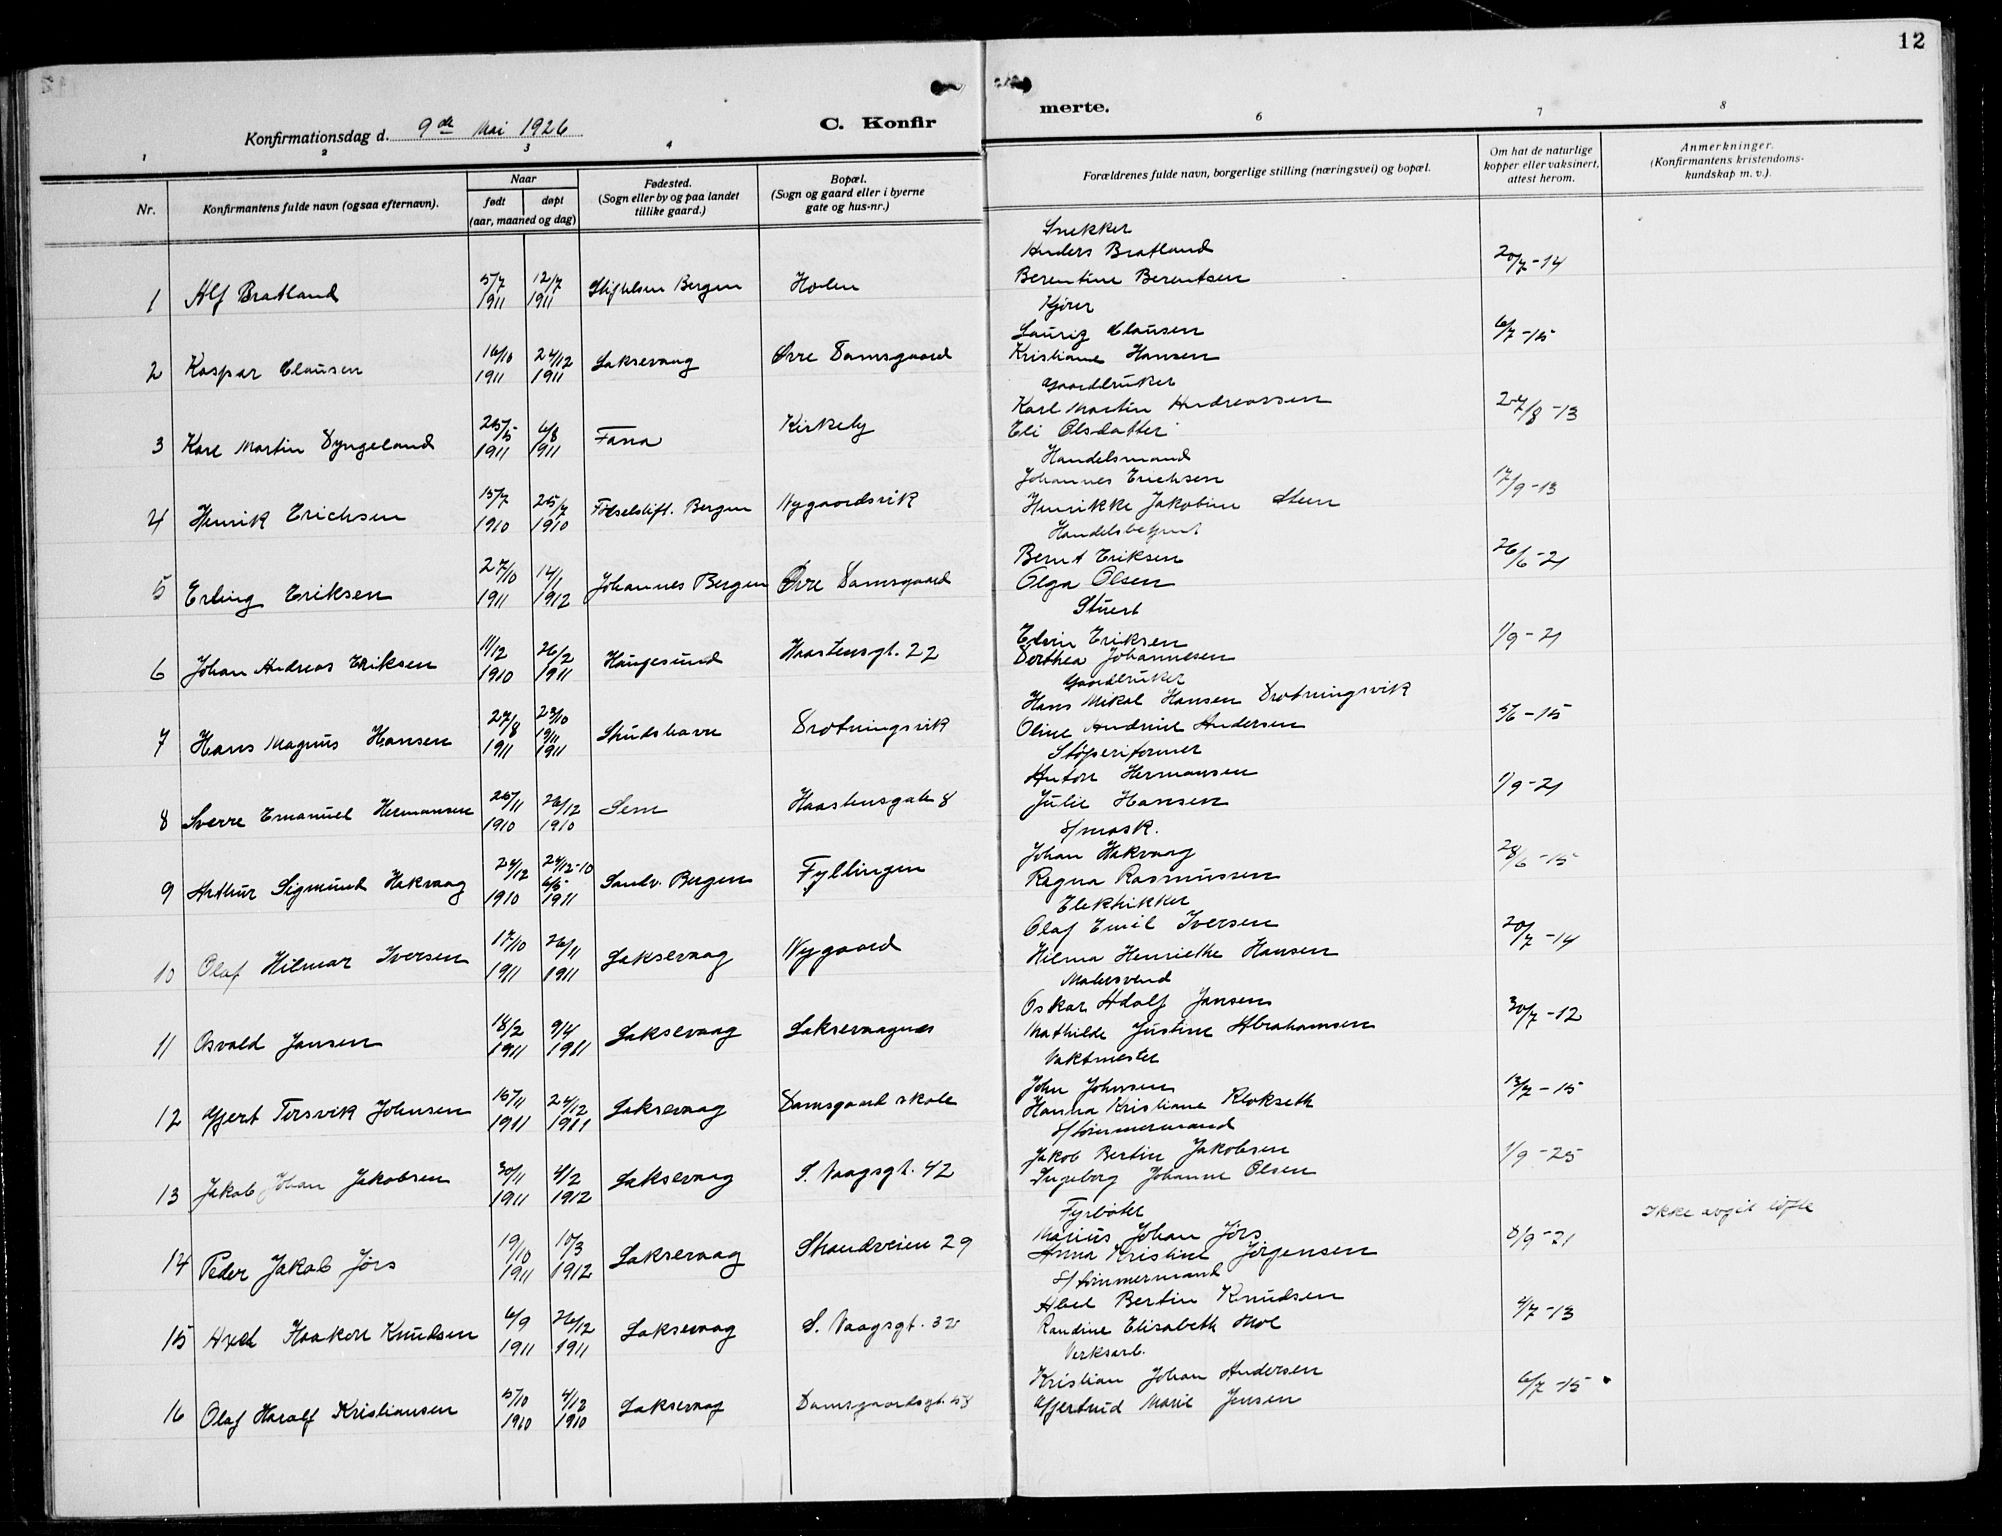 12
Konfirmationsdag d. 9de Mai 1926
C. Konfirmerte.
1 2 3 4 6 7 8
Nr.
Konfirmantens fulde navn (ogsaa efternavn).
Naar
født døpt
(aar, maaned og dag)
Fødested.
(Sogn eller by og paa landet
tillike gaard.)
Bopæl.
(Sogn og gaard eller i byerne
gate og hus-nr.)
Forældrenes fulde navn, borgerlige stilling (næringsvei) og bopæl.
Om hat de naturlige
kopper eller vaksinert,
attest herom.
Anmerkninger.
(Konfirmantens kristendoms-
kundskap m. v.).
Snekker
Anders Bratland
1 Alf Bratland 5/7 1911 12/7 1911 Stiftelsen Bergen Holen Berentine Berentsen 20/7-14
Kjører
Lauriz Clausen
2 Kaspar Clausen 16/10 1911 24/12 1911 Laksevaag Øvre Damsgaard Kristiane Hansen 6/7-15
Gaardbruker
Karl Martin Andreassen
3 Karl Martin Dyngeland 25/5 1911 6/8 1911 Fana Kirkeby Eli Olsdatter 27/8-13
Handelsmand
Johannes Erichsen
4 Henrik Erichsen 15/7 1910 25/7 1910 Fødselstift. Bergen Nygaardsvik Henrikke Jakobine Steen 17/9-13
Handelsbetjent
Bernt Eriksen
5 Erling Eriksen 27/10 1911 14/1 1912 Johannes Bergen Øvre Damsgaard Olga Olsen 26/6-21
Stuert
Edvin Eriksen
6 Johan Andreas Eriksen 11/12 1910 26/2 1911 Haugesund Haastensgt. 22 Dorthea Johannesen 1/9-21
Gaardbruker
Hans Mikal Hansen Drotningsvik
7 Hans Magnus Hansen 27/8 1911 29/10 19/11 1911 Skudshavn Drotningsvik Oline Andrine Andersen 5/6-15
Støperiformer
Anton Hermansen
8 Sverre Emanuel Hermansen 25/11 1910 26/12 1910 Sem Haastensgate 8 Julie Hansen 1/9-21
S/mask.
Johan Hakvaag
9 Arthur Sigmund Hakvaag 24/12 1910 24/12-10 6/5 1911 Sandv. Bergen Fyllingen Ragna Rasmussen 28/6-15
Elektrikker
Olaf Emil Iversen
10 Olaf Hilmar Iversen 17/10 1911 26/11 1911 Laksevaag Nygaard Hilma Henriette Hansen 20/7-14
Malersvend
Oskar Adolf Jansen
11 Osvald Jansen 18/2 1911 9/4 1911 Laksevaag Laksevaagnes Mathilde Justine Abrahamsen 30/7-12
Vaktmester
John Johnsen
12 Gjert Torsvik Johnsen 15/11 1911 24/12 1911 Laksevaag Damsgaard skole Hanna Kristiane Klokseth 13/7-15
S/tømmermand
Jakob Bertin Jakobsen
13 Jakob Johan Jakobsen 30/11 1911 4/2 1912 Laksevaag S. Vaagsgt. 42 Ingeborg Johanne Olsen 1/9-25
Fyrbøter
Marius Johan Jörs
14 Peder Jakob Jörs 19/10 1911 10/3 1912 Laksevaag Strandveien 29 Anna Kristine Jörgensen 8/9-21 Ikke avgit löfte
S/tømmermand
Abel Bertin Knudsen
15 Axel Haakon Knudsen 6/9 1911 26/12 1911 Laksevaag S. Vaagsgt. 32 Randine Elisabeth Moe 4/7-13
Verksarb.
Kristian Johan Andersen
16 Olaf Haralf Kristiansen 5/10 1910 4/12 1910 Laksevaag Damsgaardsgt. 58 Gjertrud Marie Jensen 6/7-15